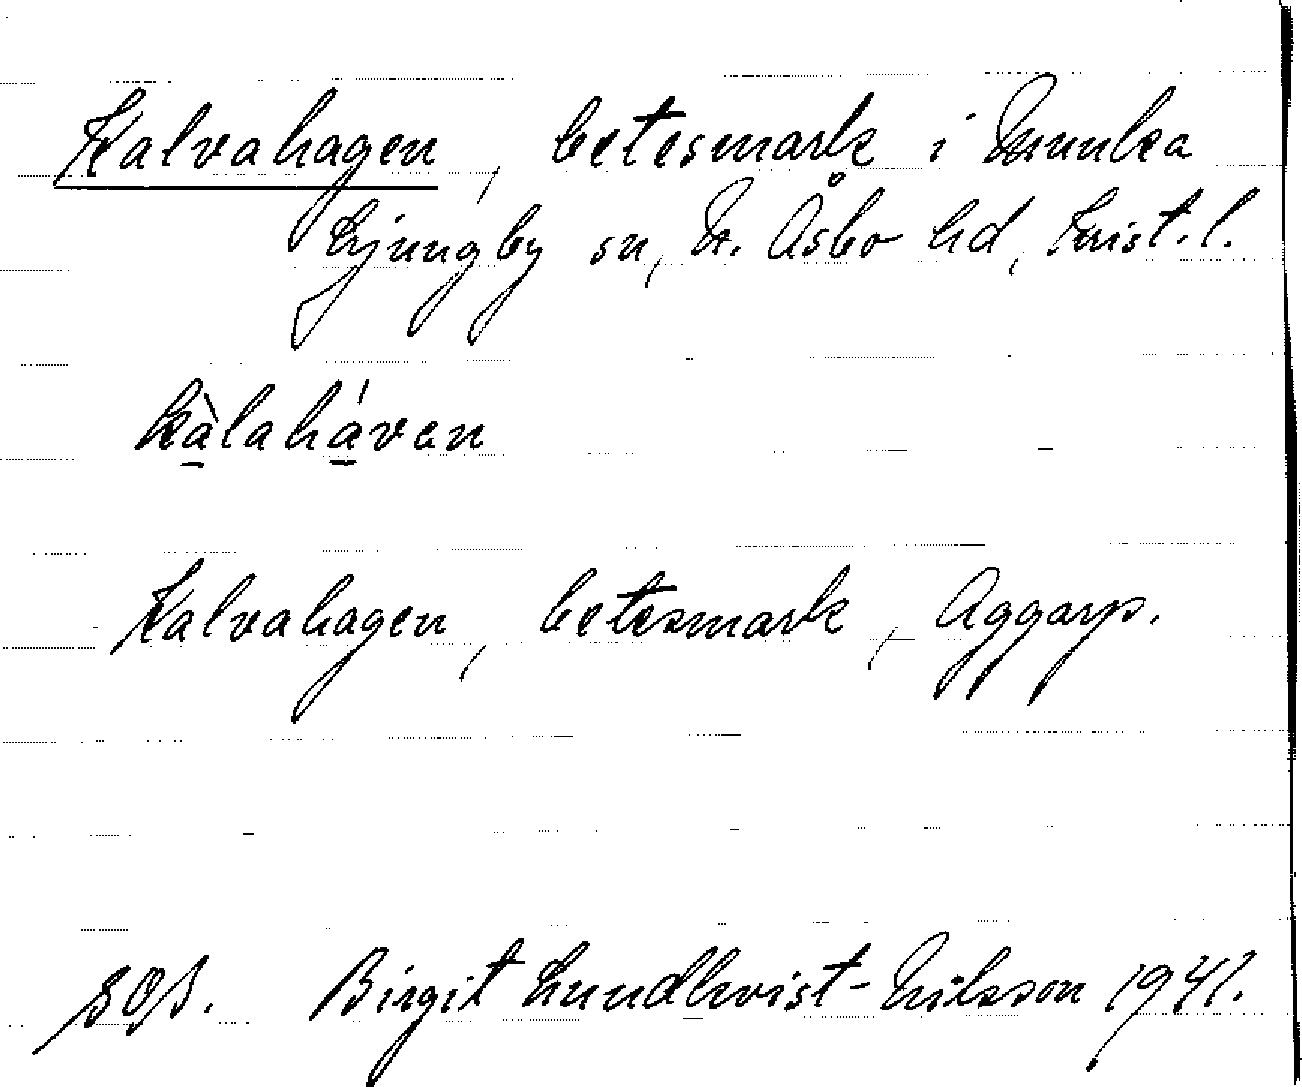 Kalvahagen, betesmark i Munka
Ljungby sn, N. Åsbo hd, Krist. l.
kàlaháven
Kalvahagen, betesmark, Aggarp.
Birgit Lundkvist-Nilsson 1941.